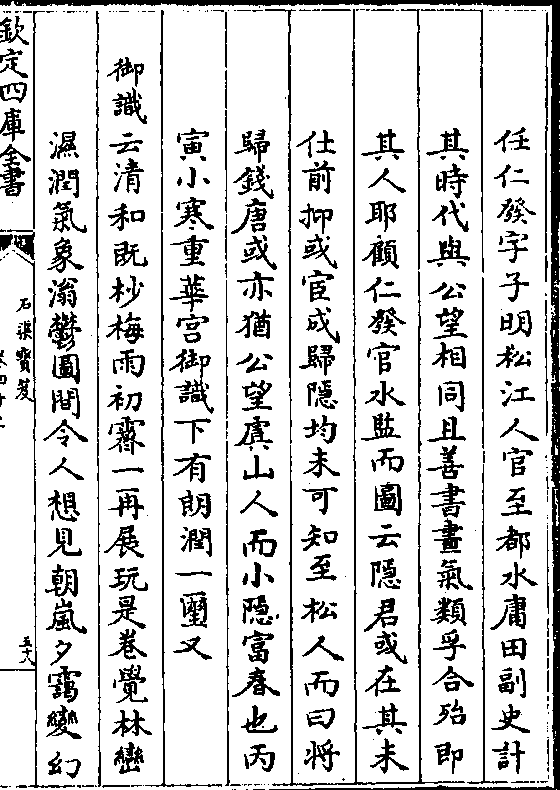 任仁發字子明松江人官至都水庸田副史計
其時代與公望相同且善書畫氣類孚合殆即
其人耶顧仁發官水監而圖云隱君或在其未
仕前抑或宦成歸隱均未可知至松人而曰將
歸錢唐或亦猶公望虞山人而小隱富春也丙
寅小寒重華宮御識下有朗潤一璽又
御識云清和既杪梅雨初霽一再展玩是卷覺林巒
濕潤氣象滃鬱圖間令人想見朝嵐夕靄變幻
欽定四庫全書
石渠寶笈
五十八